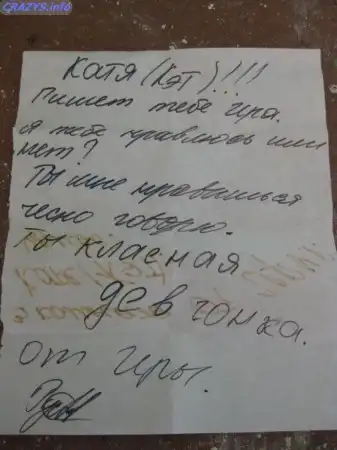 CRAZYS.info
Катя (Кэт)!!!
Пишет тебе Ира.
я тебе нравлюсь или
нет?
Ты мне нравишься
чесно говорю.
Ты класная
девчонка.
от Иры.